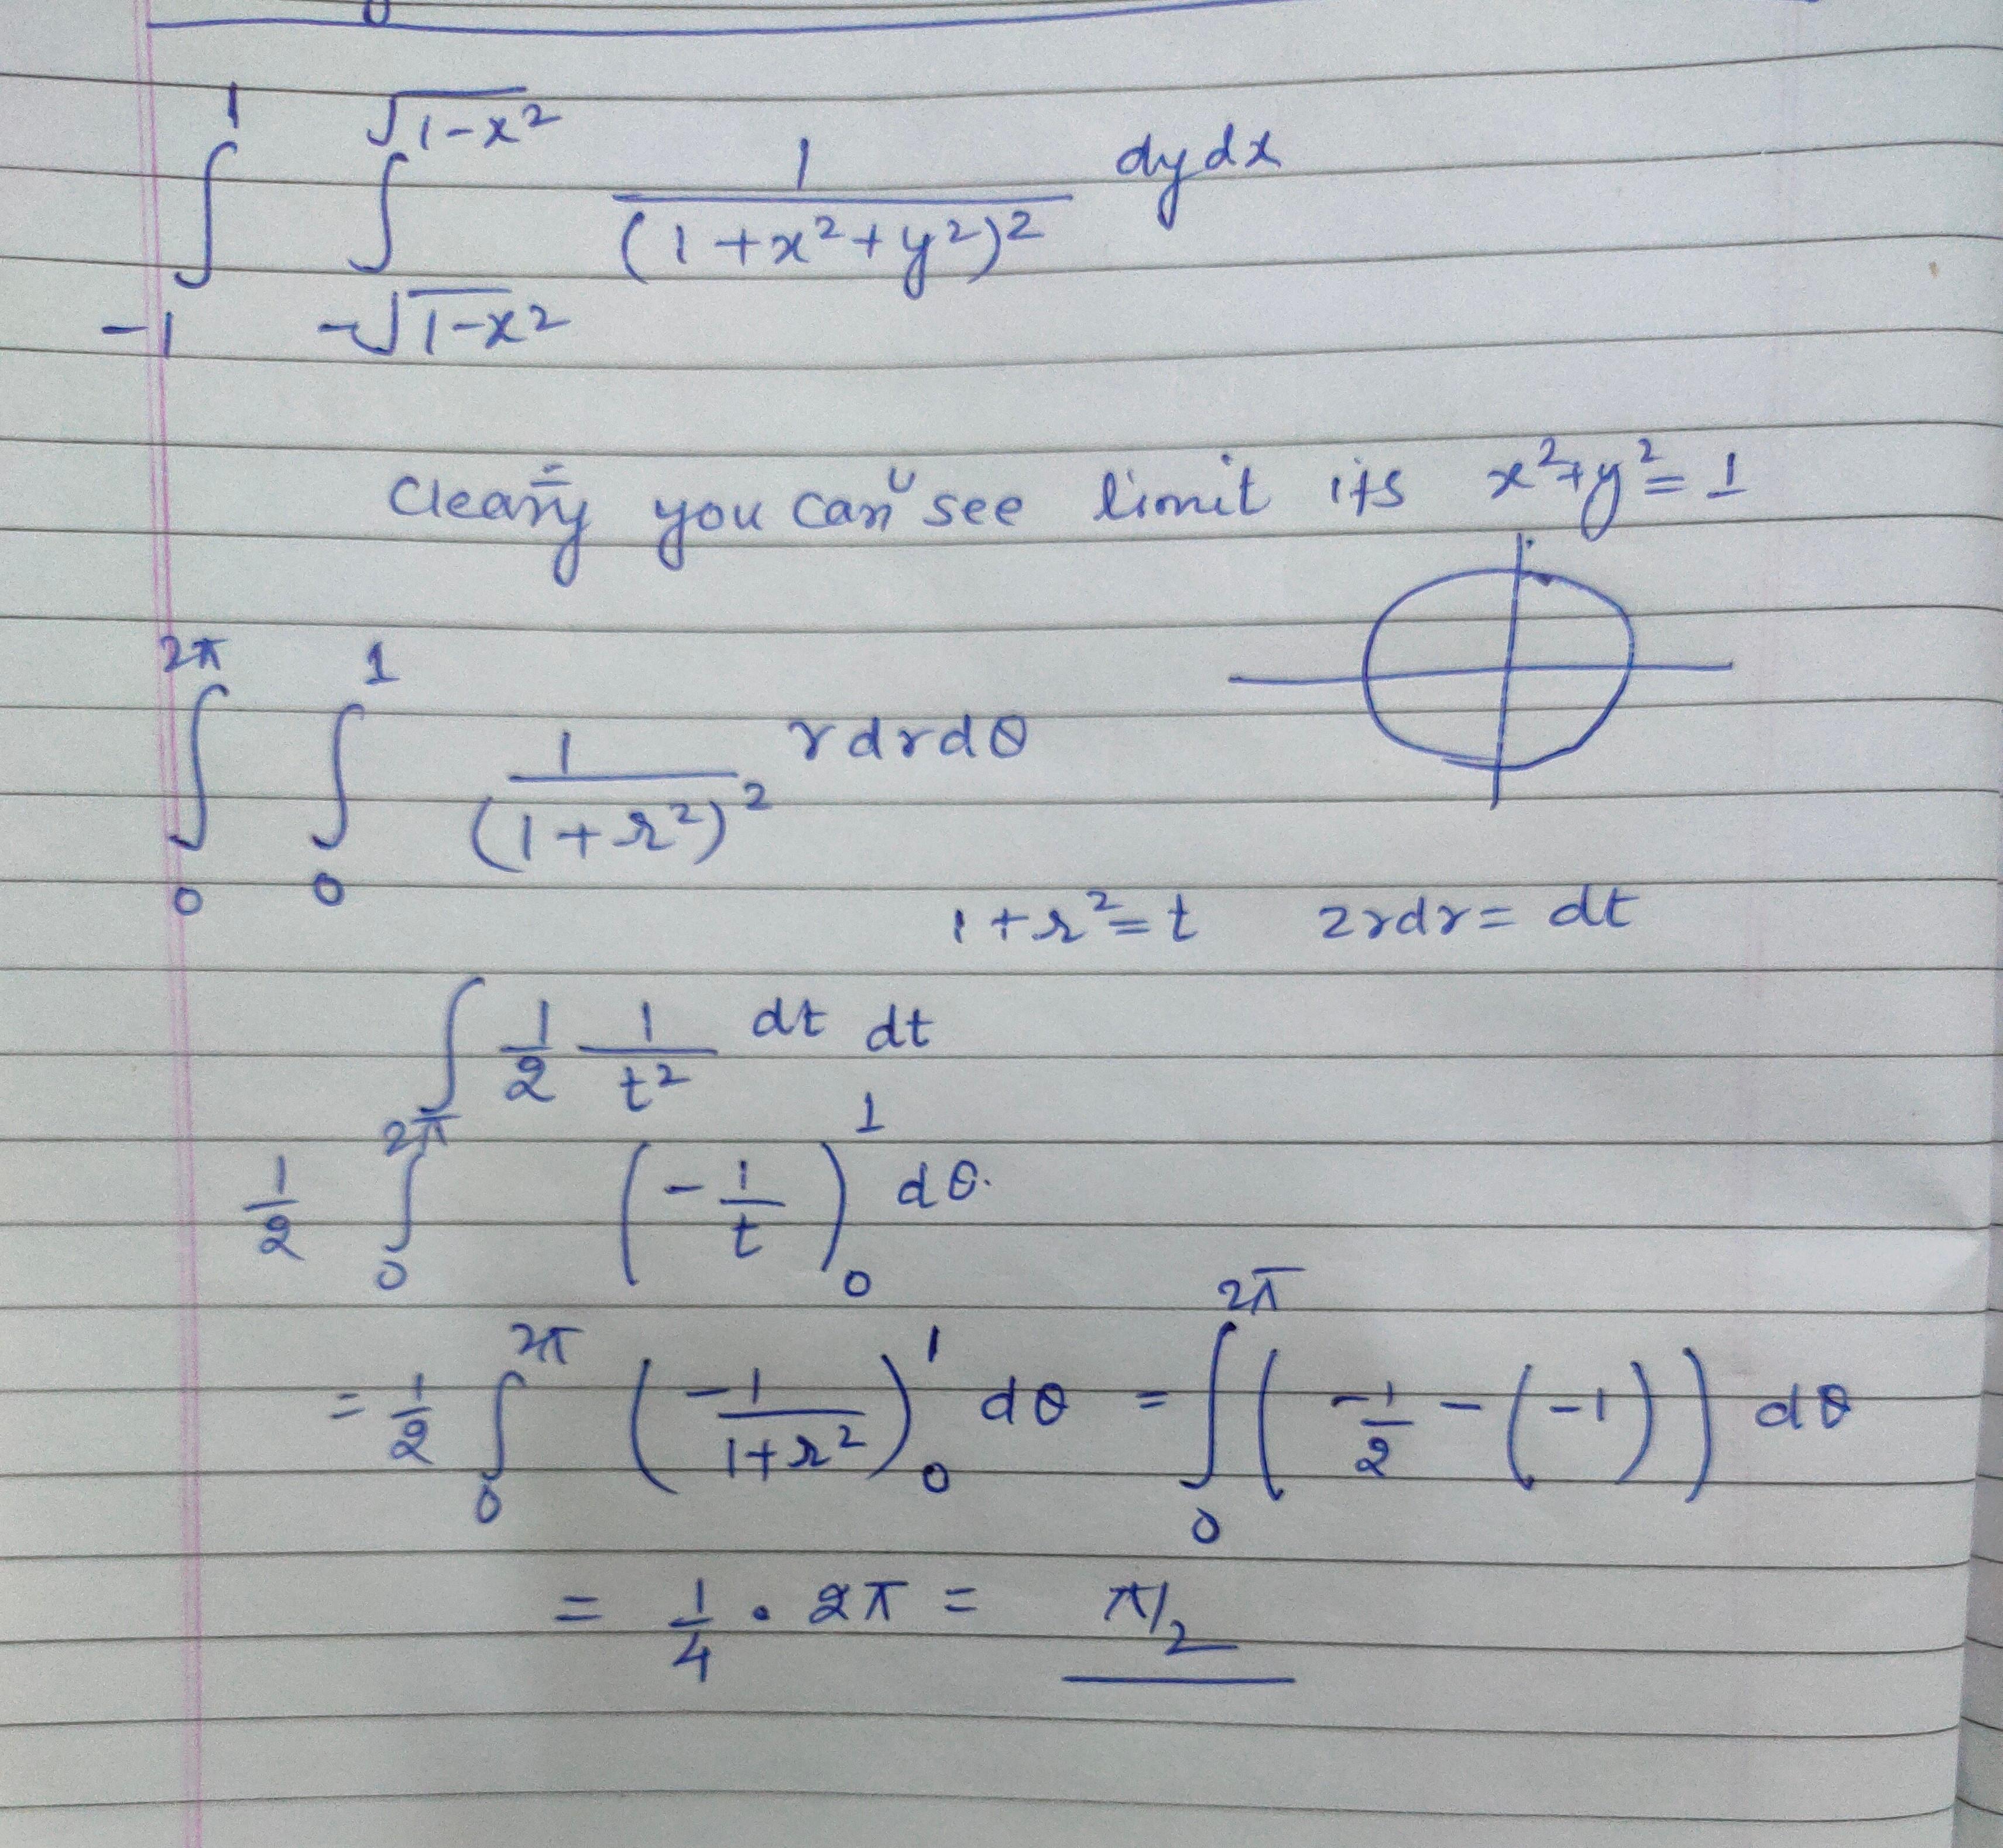 ∫_{-1}^{1} ∫_{-√(1-x²)}^{√(1-x²)} 1/(1+x²+y²)² dy dx
Clearly you can see limit its x²+y²=1
∫_0^{2π} ∫_0^1 1/(1+r²)² r dr dθ
1+r²=t 2rdr=dt
∫ 1/2 1/t² dt dt
1/2 ∫_0^{2π} (-1/t)_0^1 dθ.
= 1/2 ∫_0^{2π} (-1/(1+r²))_0^1 dθ = ∫_0^{2π} (-1/2 - (-1)) dθ
= 1/4 · 2π = π/2